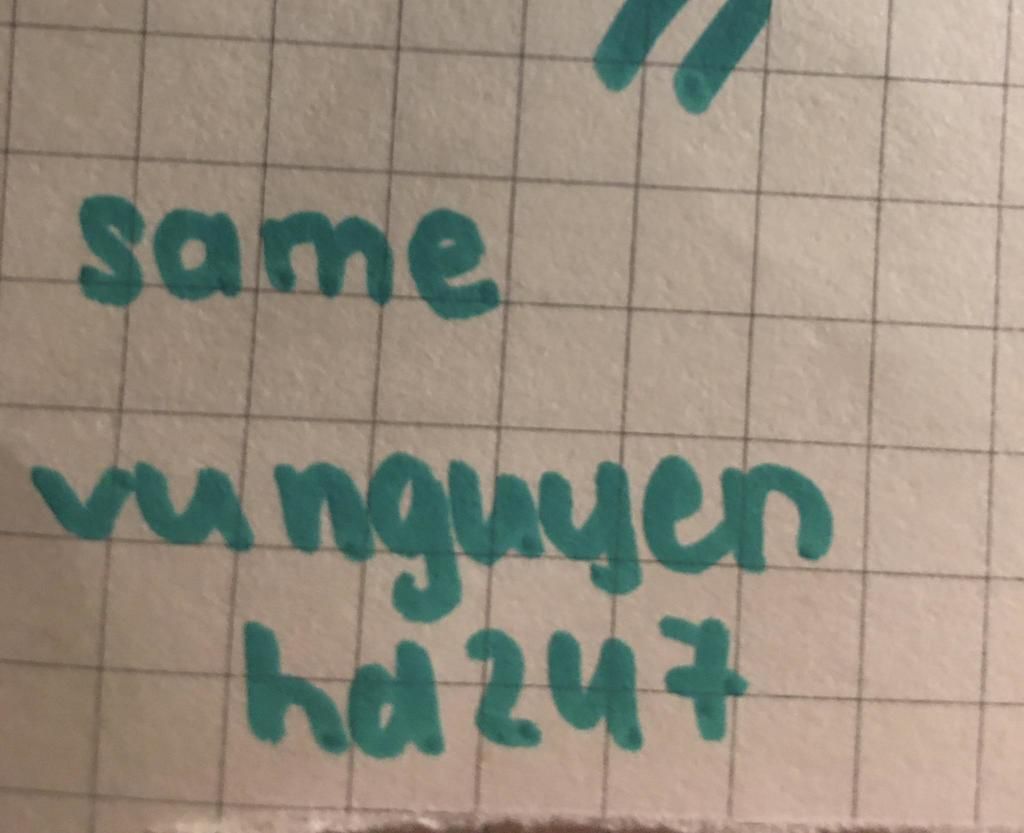 same
vunguyen
hd247